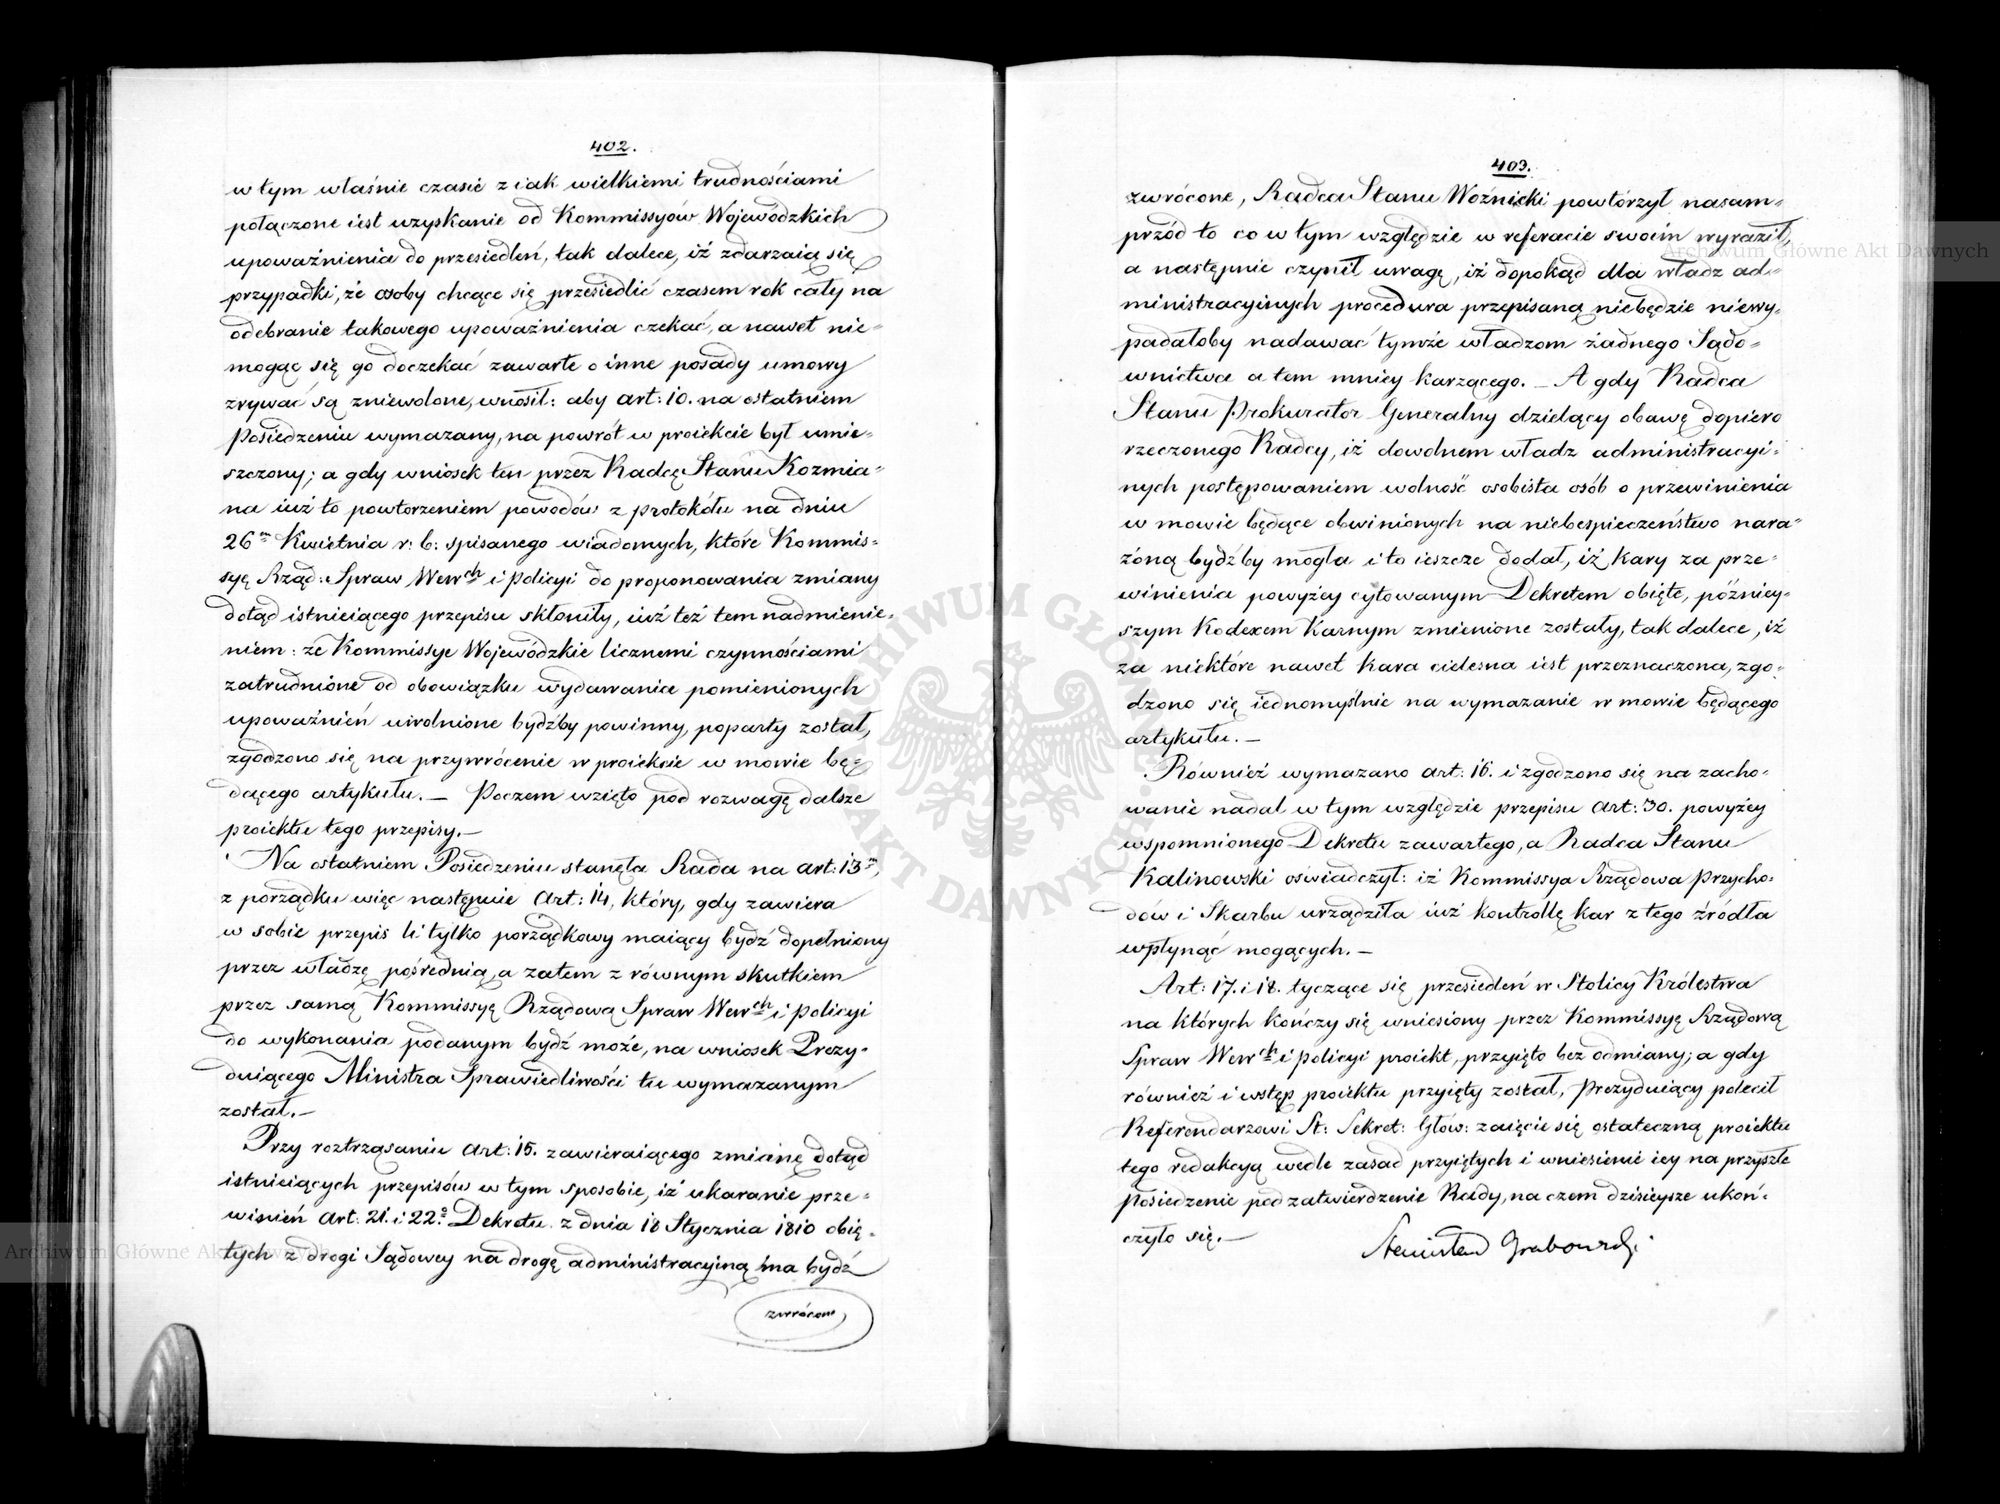 402.
w tym właśnie czasie z iak wielkiemi trudnościami
połączone iest uzyskanie od Kommissyów Woiewódzkich
upoważnienia do przesiedleń, tak dalece, iż zdarzaią się
przypadki, że osoby chcące się przesiedlić czasem rok cały na
odebranie takowego upoważnienia czekać, a nawet nie-
mogąc się go doczekać zawarte o inne posady umowy
zrywać są zniewolone, wnosił: aby art: 10. na ostatniem
Posiedzeniu wymazany, na powrót w proiekcie był umie-
szczony; a gdy wniosek ten przez Radcę Stanu Kozmia-
na iuż to powtorzeniem powodów z protokółu na dniu
26m Kwietnia r: b: spisanego wiadomych, które Kommis-
syę Rząd: Spraw Wewch i Policyi do proponowania zmiany
dotąd istnieiącego przepisu skłoniły, iuż też tem nadmienie-
niem: że Kommissye Woiewódzkie licznemi czynnościami
zatrudnione od obowiązku wydawania pomienionych
upoważnień uwolnione bydźby powinny, poparty został,
zgodzono się na przywrócenie w proiekcie w mowie bę-
dącego artykułu. — Poczem wzięto pod rozwagę dalsze
proiektu tego przepisy. —
Na ostatniem Posiedzeniu stanęła Rada na art: 13m,
z porządku więc następnie Art: 14, który, gdy zawiera
w sobie przepis li tylko porządkowy maiący bydź dopełniony
przez władzę pośrednią, a zatem z równym skutkiem
przez samą Kommissyę Rządową Spraw Wewch i Policyi
do wykonania podanym bydź może, na wniosek Prezy-
duiącego Ministra Sprawiedliwości tu wymazanym
został. —
Przy roztrząsaniu Art: 15. zawieraiącego zmianę dotąd
istnieiących przepisów w tym sposobie, iż ukaranie prze-
winień Art: 21. i 22o Dekretu z dnia 18 Stycznia 1810 obię-
tych z drogi Sądowey na drogę administracyiną ma bydź
zwrócone
403.
zwrócone, Radca Stanu Woźnicki powtórzył nasam-
przód to co w tym względzie w referacie swoim wyraził,
a następnie czynił uwagę, iż dopokąd dla władz ad-
ministracyinych procedura przepisaną niebędzie niewy-
padałoby nadawać tymże władzom żadnego Sądo-
wnictwa a tem mniey karzącego. — A gdy Radca
Stanu Prokurator Generalny dzielący obawę dopiero
rzeczonego Radcy, iż dowolnem władz administracyi-
nych postępowaniem wolność osobista osób o przewinienia
w mowie będące obwinionych na niebezpieczeństwo nara-
żoną bydźby mogła i to ieszcze dodał, iż kary za prze-
winienia powyżey cytowanym Dekretem obięte, późniey-
szym Kodexem Karnym zmienione zostały, tak dalece, iż
za niektóre nawet kara cielesna iest przeznaczona, zgo-
dzono się iednomyślnie na wymazanie w mowie będącego
artykułu. —
Również wymazano art: 16. i zgodzono się na zacho-
wanie nadal w tym względzie przepisu Art: 30. powyżey
wspomnionego Dekretu zawartego, a Radca Stanu
Kalinowski oświadczył: iż Kommissya Rządowa Przycho-
dów i Skarbu urządziła iuż kontrollę kar z tego źródła
wpłynąć mogących. —
Art: 17. i 18. tyczące się przesiedleń w Stolicy Królestwa
na których kończy się wniesiony przez Kommissyę Rządową
Spraw Wewch i Policyi proiekt, przyięto bez odmiany; a gdy
również i wstęp proiektu przyięty został, Prezyduiący polecił
Referendarzowi St: Sekret: Głów: zaięcie się ostateczną proiektu
tego redakcyą wedle zasad przyiętych i wniesienie iey na przyszłe
Posiedzenie pod zatwierdzenie Rady, na czem dzisieysze ukoń-
czyło się. —
Stanisław Grabowski
Archiwum Główne Akt Dawnych
Archiwum Główne Akt Dawnych
ARCHIWUM GŁÓWNE AKT DAWNYCH